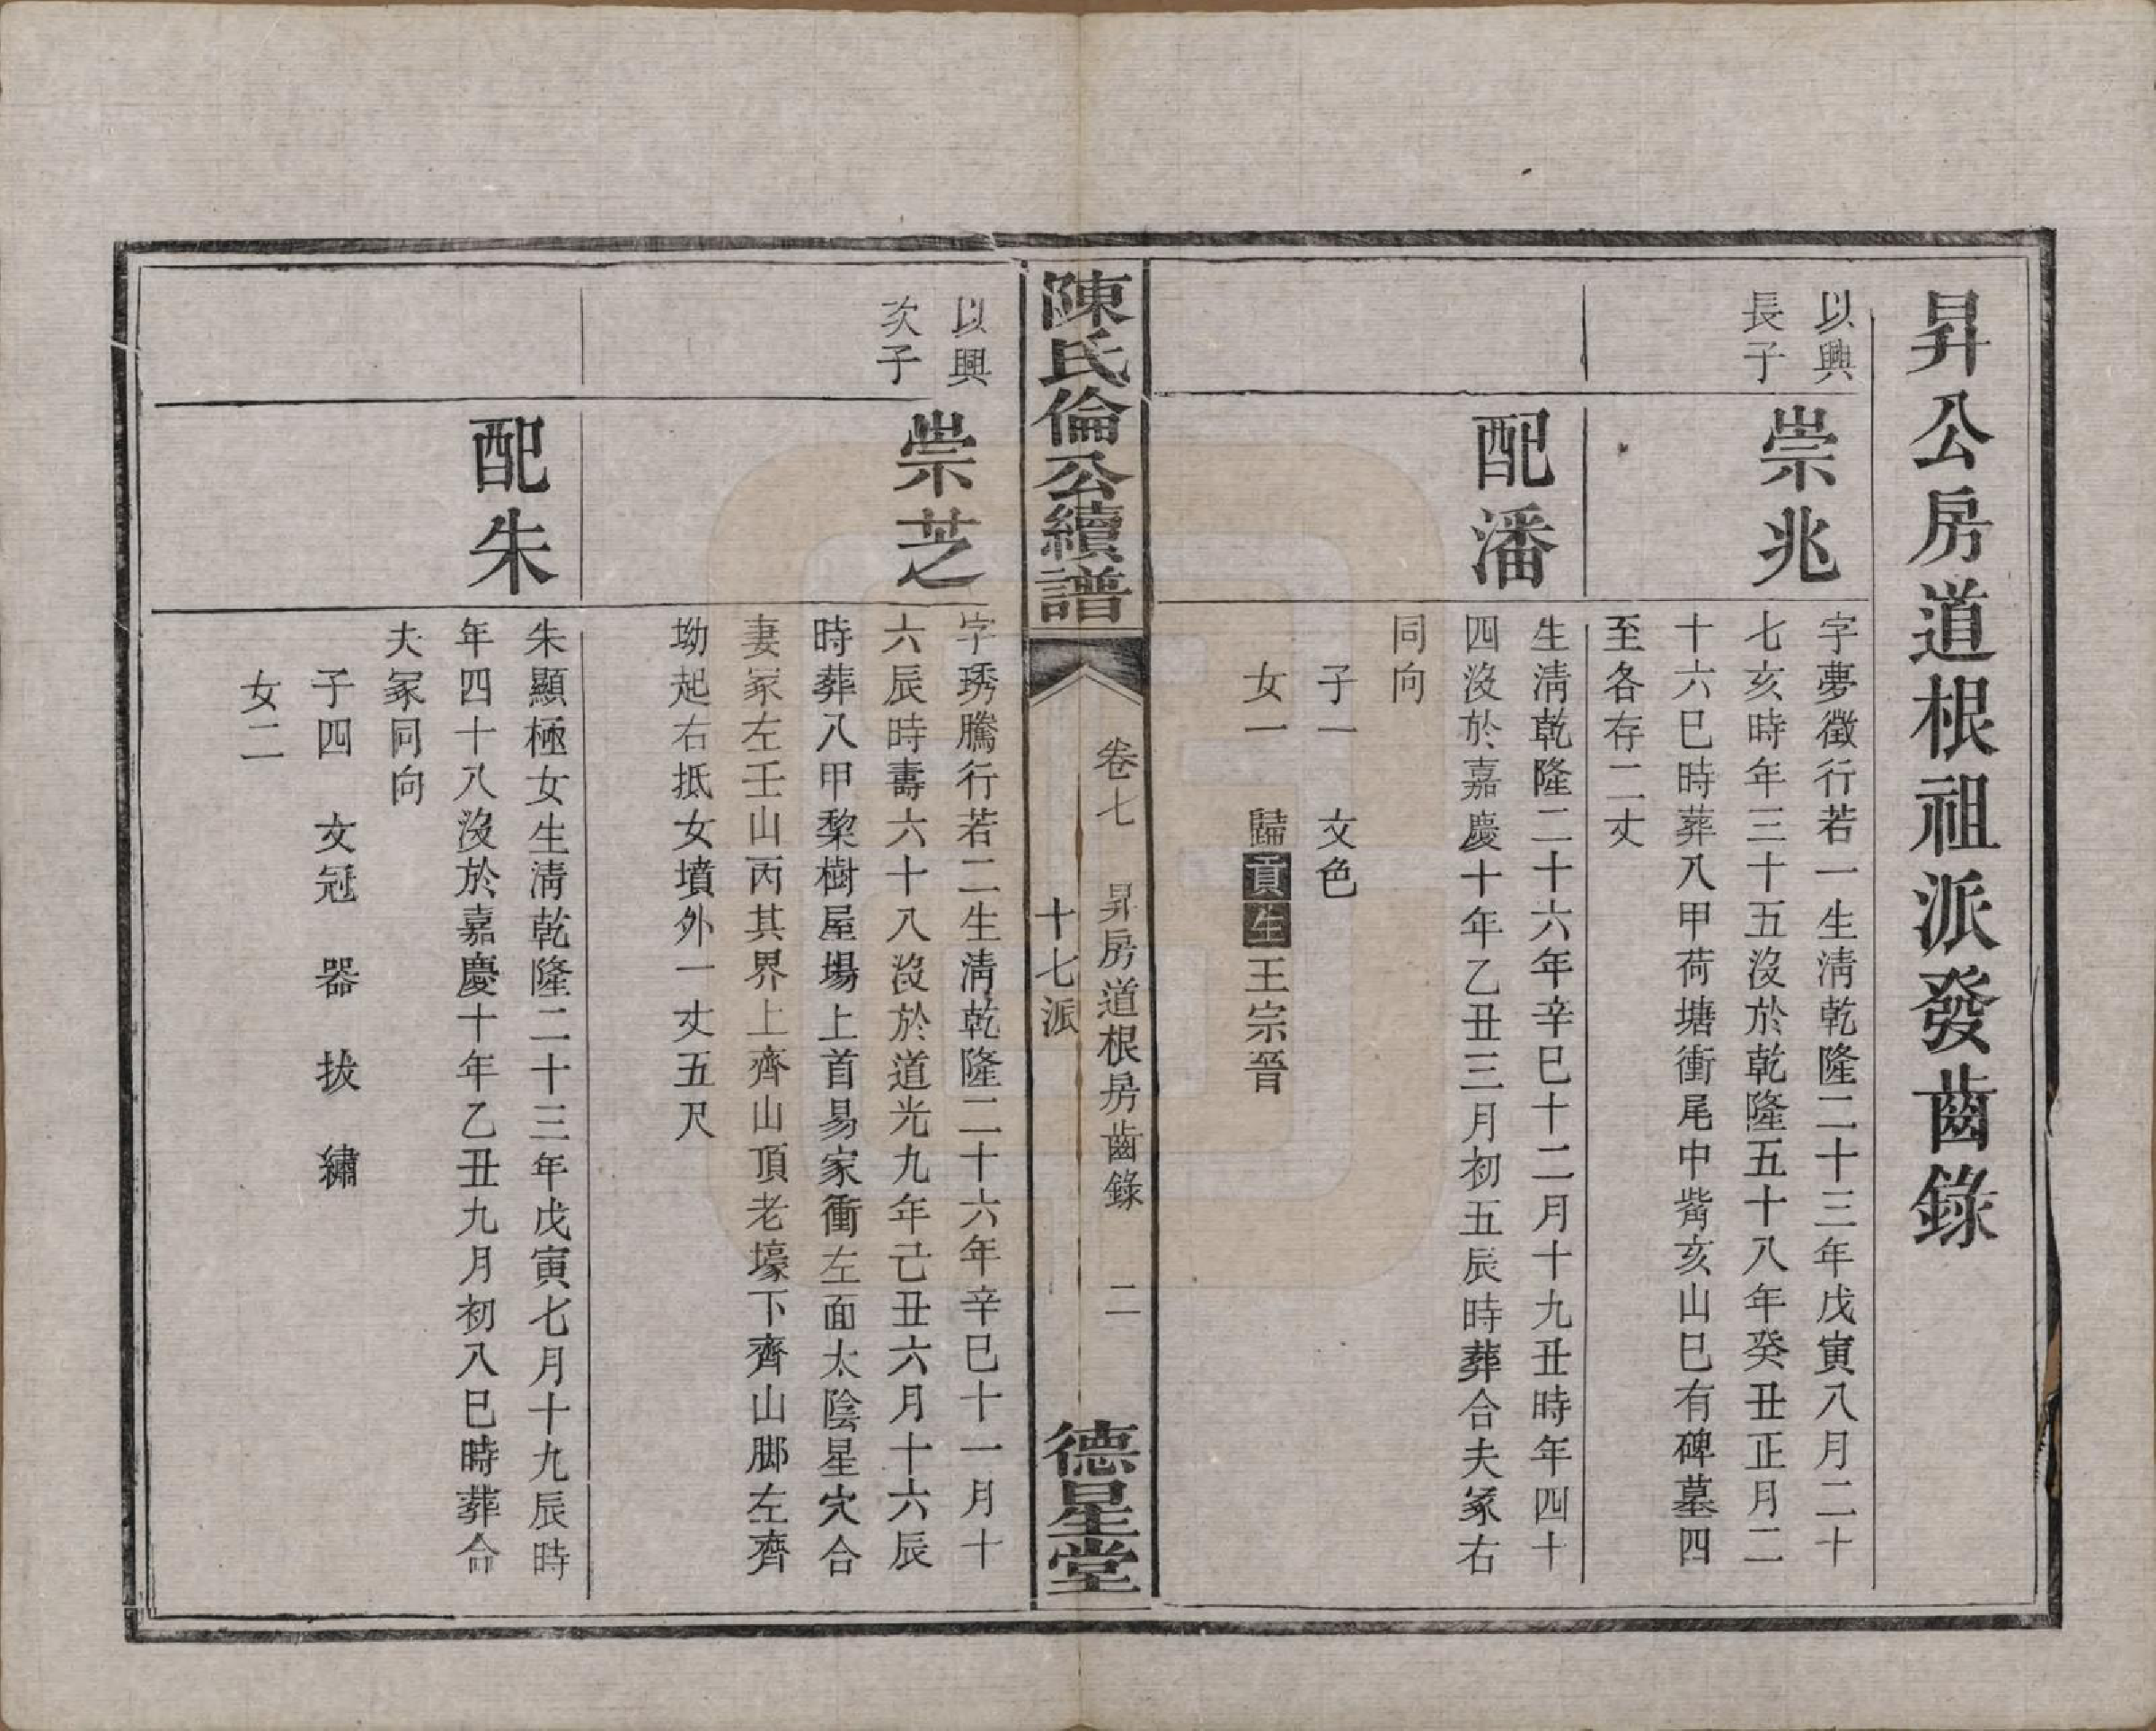 昇公房道根祖派發齒錄
以興
長子
崇兆
字夢徵行若一生淸乾隆二十三年戊寅八月二十
七亥時年三十五沒於乾隆五十八年癸丑正月二
十六巳時葬八甲荷塘衝尾中嘴亥山巳有碑墓四
至各存二丈
配潘
生淸乾隆二十六年辛巳十二月十九丑時年四十
四沒於嘉慶十年乙丑三月初五辰時葬合夫冢右
同向
子一　文色
女一　歸貢生王宗晉
陳氏倫公續譜
卷七　昇房道根房齒錄　二
十七派
德星堂
以興
次子
崇芝
字琇騰行若二生淸乾隆二十六年辛巳十一月十
六辰時壽六十八沒於道光九年己丑六月十六辰
時葬八甲黎樹屋場上首易家衝左面太陰星穴合
妻冢左壬山丙其界上齊山頂老壕下齊山脚左齊
坳起右抵女墳外一丈五尺
配朱
朱顯極女生淸乾隆二十三年戊寅七月十九辰時
年四十八沒於嘉慶十年乙丑九月初八巳時葬合
夫冢同向
子四　文冠　器　拔　繡
女二